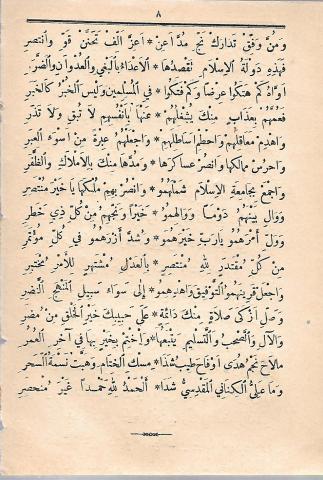 ٨
وَمَنْ وَفَّقَ تدارك نَجْ مُدَّ أَعِنْ * أَعِزَّ أَلِّفْ تَحَنَّنْ قَوِّ وانتصر
فهذه دولة الإسلام تقصدها * الأعداء بالبغي والعدوان والضرر
وكم هتكوا عرضا وكم فتكوا * في المسلمين وليس الخبر كالخبر
فعمهم بعذاب منك يشغلهم * عنها بأنفسهم لا تبق ولا تذر
واهدم معاقلهم واحطم اساطلهم * واجعلهم عبرة من أسوء العبر
واحرس ممالكها وانصر عساكرها * ومدها منك بالإملاك والظفر
واجمع بجامعة الإسلام شملهمو * وانصر بهم ملكها يا خير منتصر
ووال بينهم دوما ووالهمو * خيرا ونجهم من كل ذي خطر
وول أمرهمو يا رب خيرهمو * وشد أزرهمو في كل مؤتمر
من كل مقتدر لله منتصر * بالعدل مشتهر للأمر مختبر
واجعل قرينهمو التوفيق واهدهمو * إلى سواء سبيل المنهج النضر
وصل أزكى صلاة منك دائمة * على حبيبك خير الخلق من مضر
والآل والصحب والتسليم يتبعها * واختم بخير بها في آخر العمر
ما لاح نجم هدى أو فاح طيب شذا * مسك الختام وهبت نسمة السحر
وما علي الكناني المقدسي شدا * ألحمد لله حمدا غير منحصر